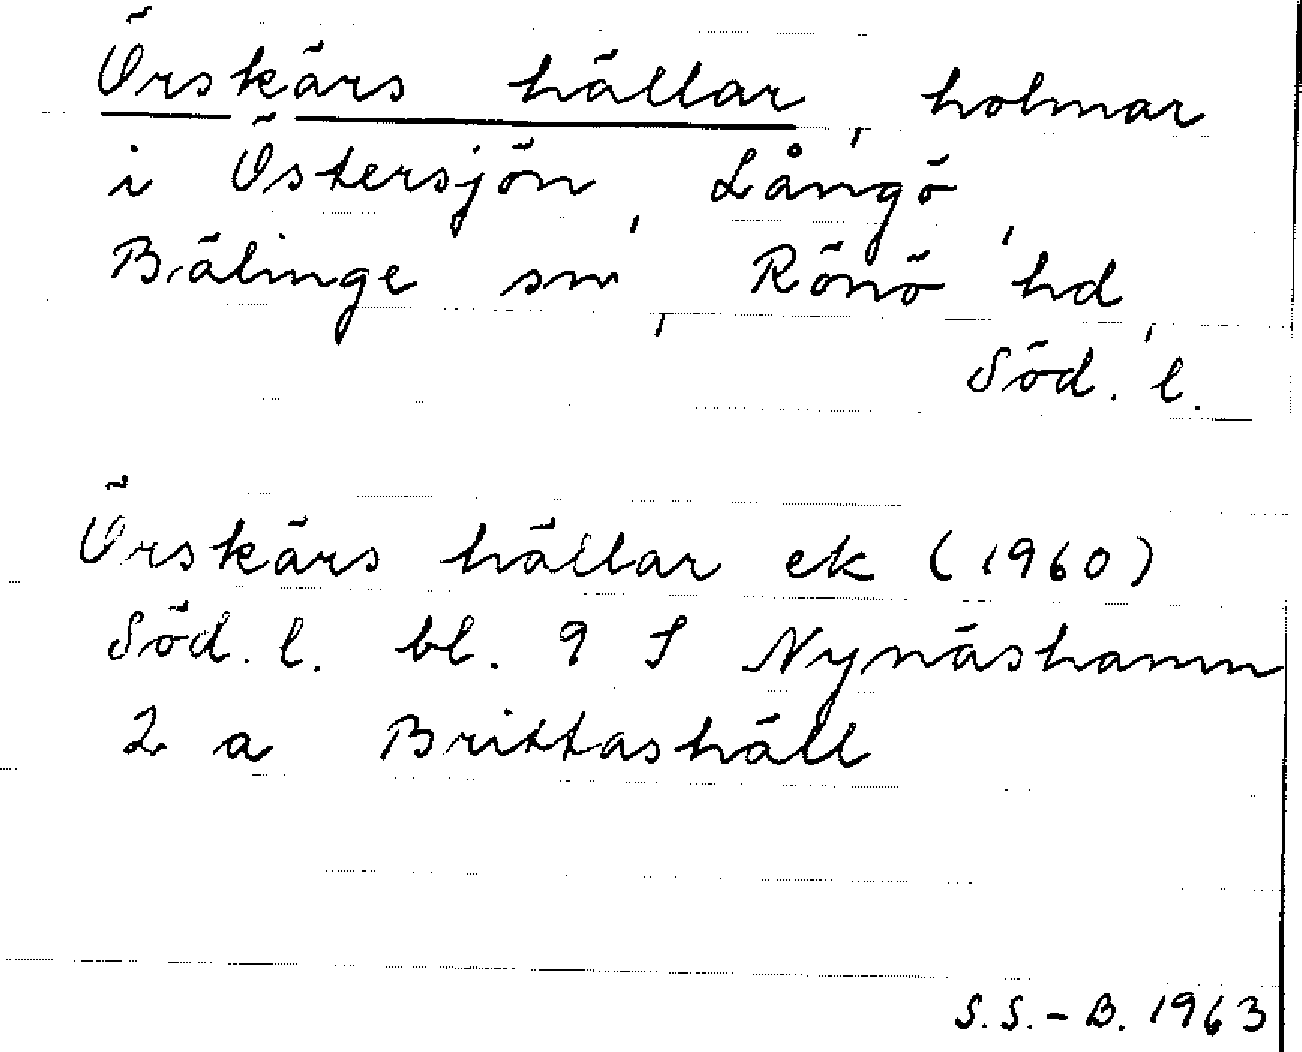 Örskärs hällar, holmar
i Östersjön, Långö,
Bälinge sn, Rönö hd,
Söd. l.
Örskärs hällar ek (1960)
Söd. l. bl. 9 S Nynäshamn
2 a Brittashäll
S.S.-B. 1963